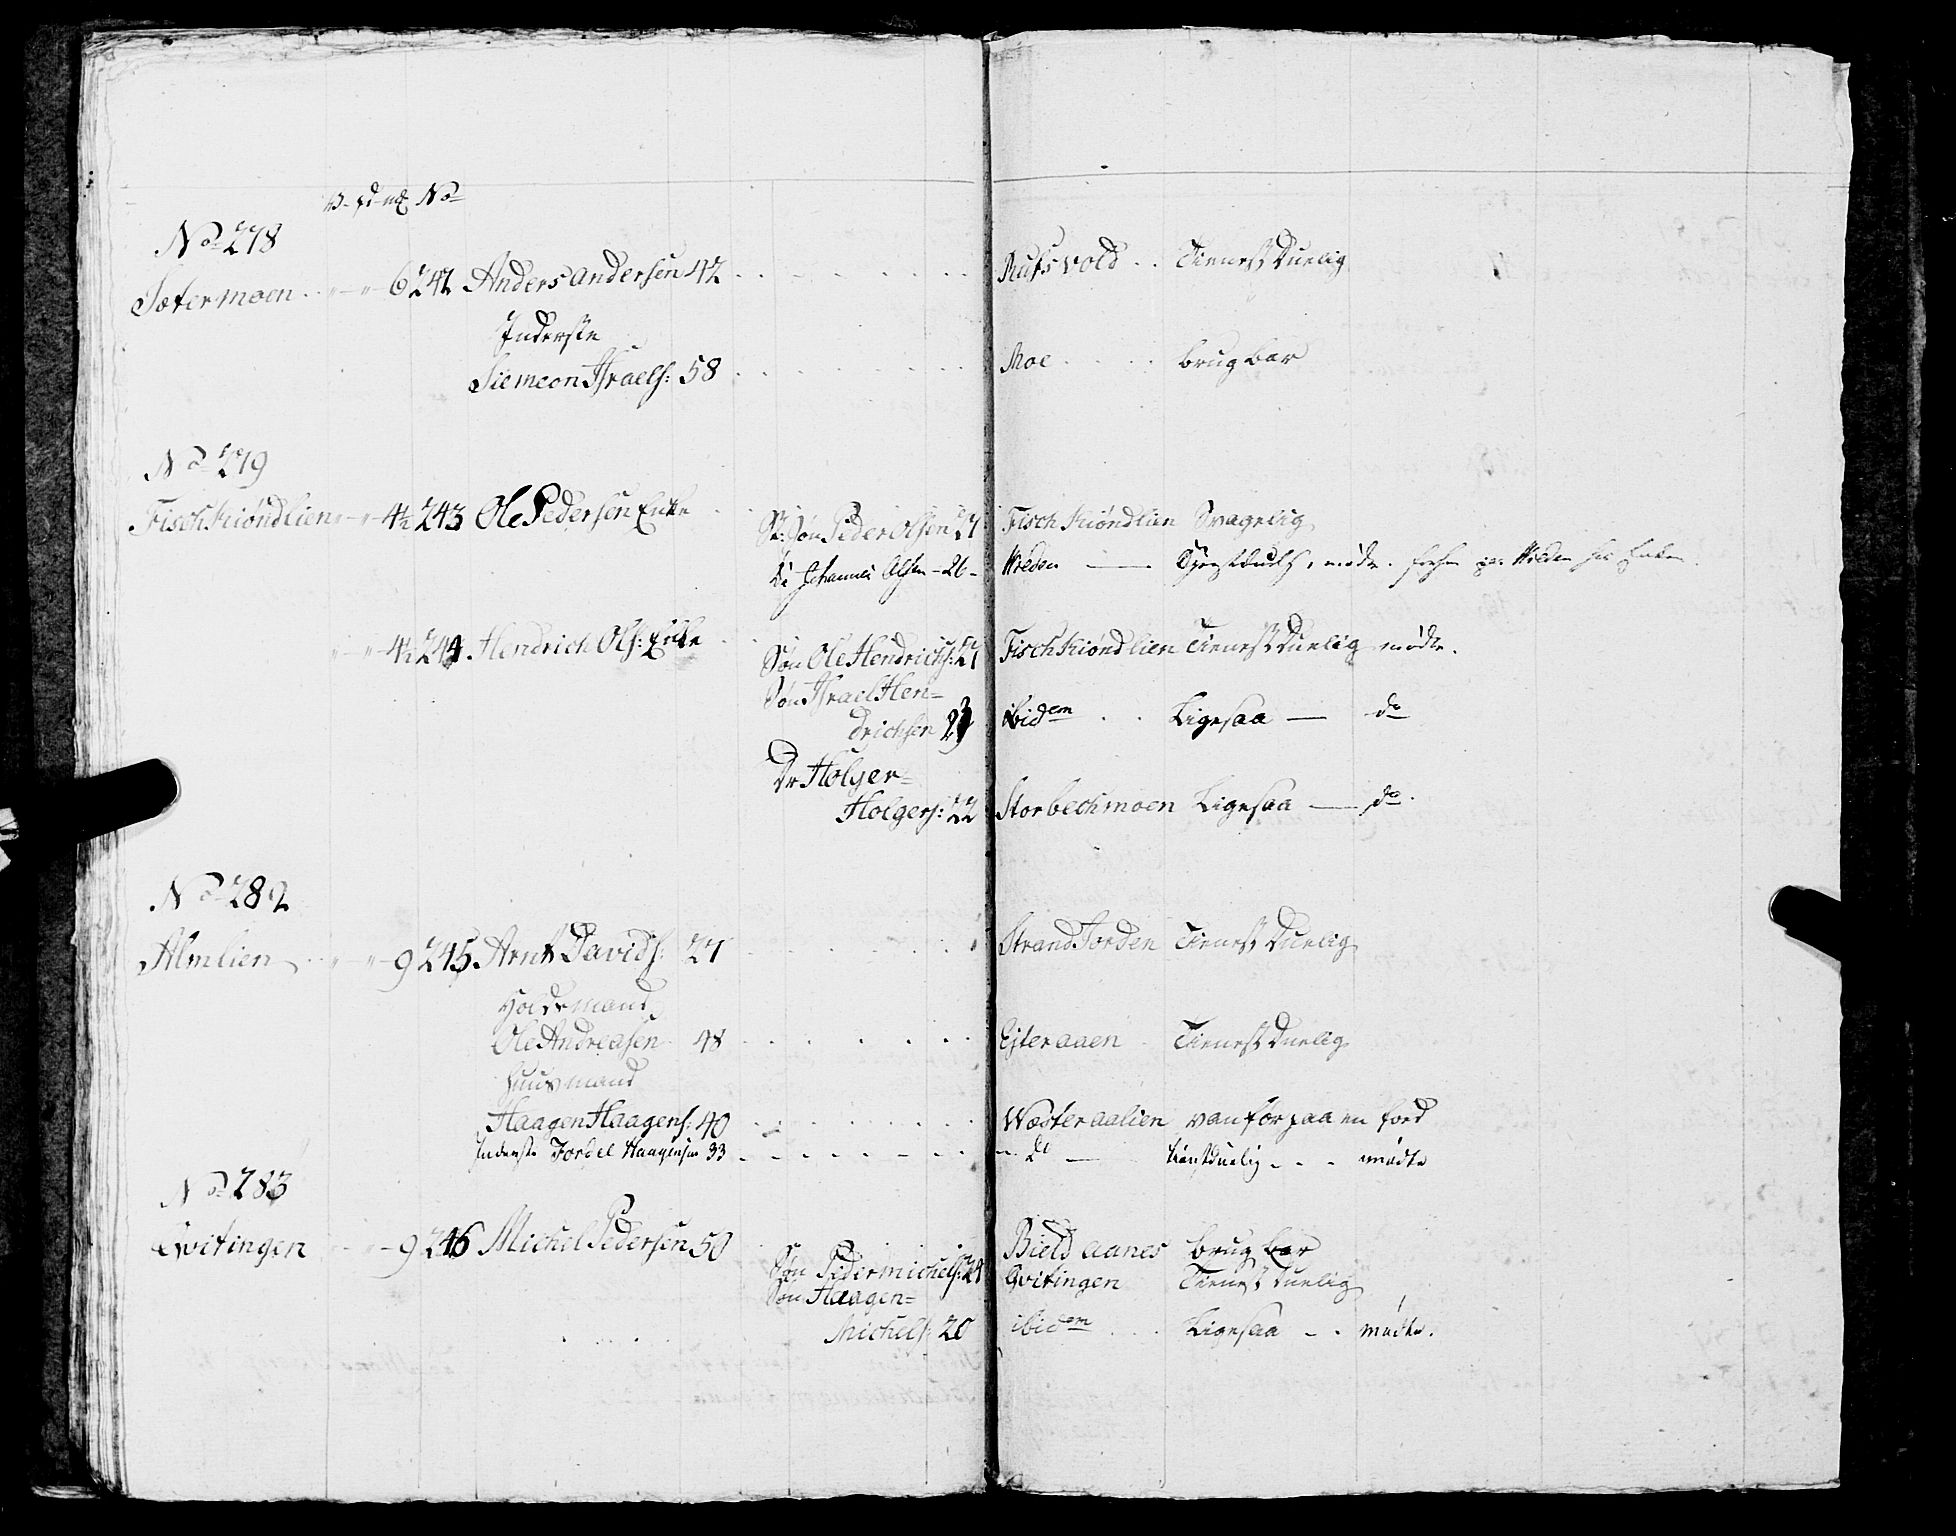 No
No 278
Sætermoen 6 242 Anders Andersen 42 Rufsvold Tienest Duelig
Inderste
Siemeon Israels: 58 Moe brugbar
No 279
Fischkiøndlien 4½ 243 Ole Pedersen Enke
St: Søn Peder Olsen 27 Fischkiøndlien Svagelig
De Johannes Olsen - 26 - Wreden
4½ 244 Hendrich Ols: Enke
Søn Ole Hendrichs: 27 Fischkiøndlien Tienest Duelig mødte.
Søn Israel Hen=
drichsen 23 ibidem Ligesaa — do
Dr Holger=
Holgers: 22 Storbechmoen Ligesaa — do
No 282
Almlien 9 245 Arnt Davids: 27 StrandJorden Tienest Duelig
Holdsmand
Ole Andreasen 48 Ejteraaen Tienest Duelig
Huusmand
Haagen Haagens: 40 Wæsteraalien vanfør paa en food
Inderste Jordel Haagensen 33 do — tienstduelig - - - mødte
No 283
Qvitingen 9 246 Michel Pedersen 50 Bieldaanes brugbar
Søn Peder Michels: 24 Qvitingen Tienest Duelig
Søn Haagen=
Michels: 20 ibidem Ligesaa - - mødte.